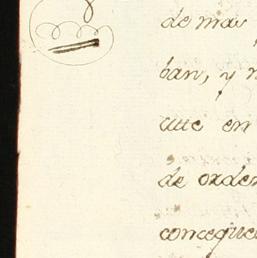 de mas
ban, y
que en
de orden
conceque